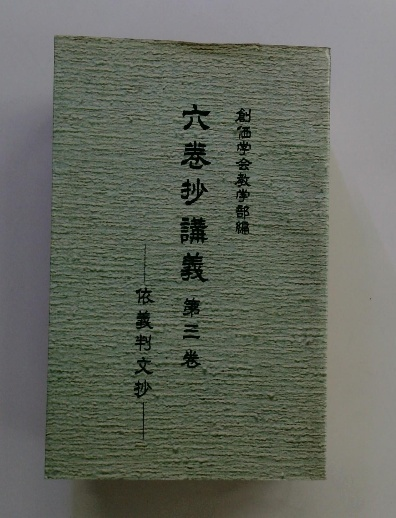 創価学会教学部編
六巻抄講義 第三巻
──依義判文抄──